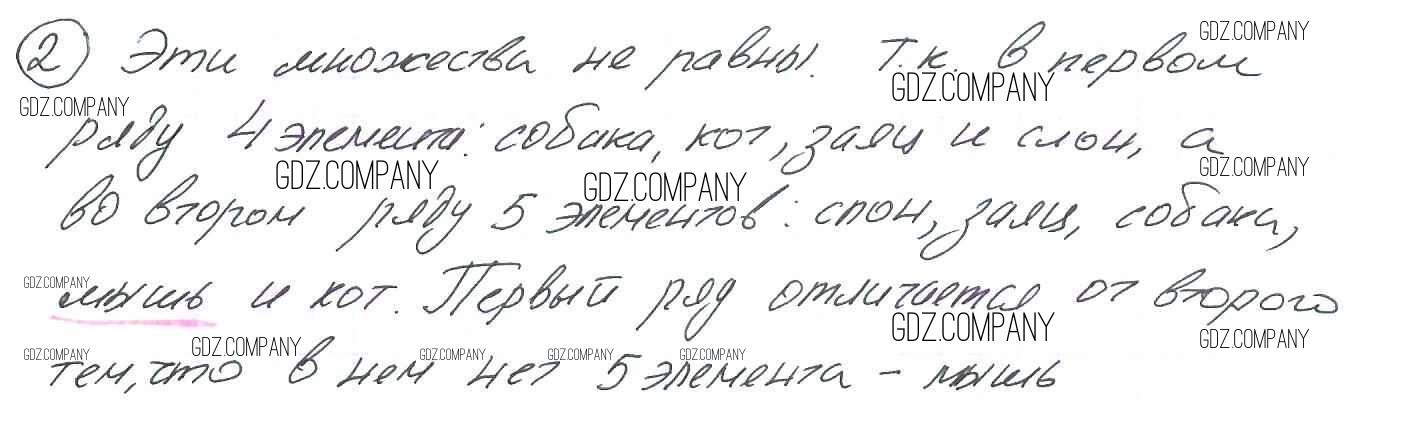 ② Эти множества не равны. Т.к. в первом
GDZ.COMPANY
GDZ.COMPANY
GDZ.COMPANY
ряду 4 элемента: собака, кот, заяц и слон, а
GDZ.COMPANY
GDZ.COMPANY
GDZ.COMPANY
во втором ряду 5 элементов: слон, заяц, собака,
GDZ.COMPANY
мышь и кот. Первый ряд отличается от второго
GDZ.COMPANY
GDZ.COMPANY
GDZ.COMPANY
GDZ.COMPANY
GDZ.COMPANY
GDZ.COMPANY
GDZ.COMPANY
тем, что в нем нет 5 элемента - мышь